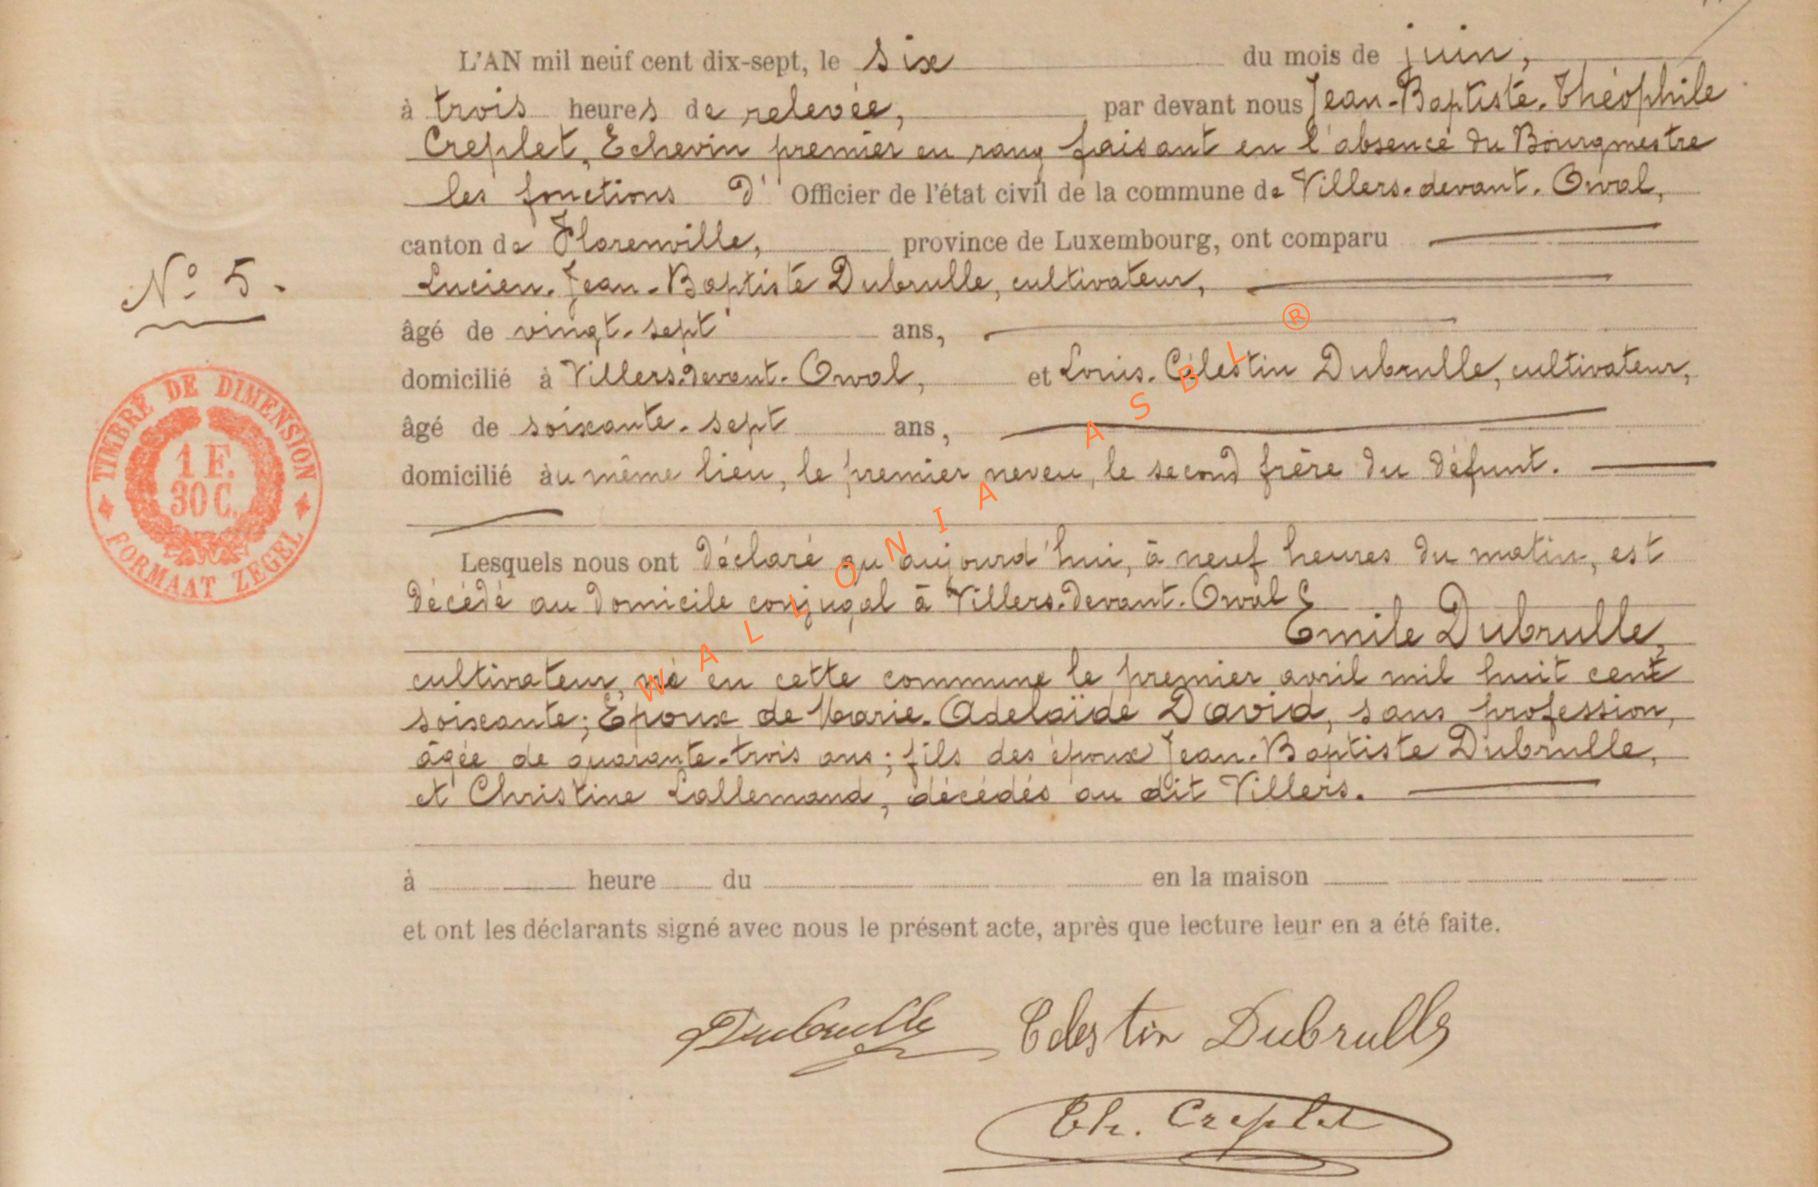 L'AN mil neuf cent dix-sept, le six du mois de juin,
à trois heures de relevée, par devant nous Jean-Baptiste-Théophile
Creplet, Echevin premier en rang faisant en l'absence du Bourgmestre
les fonctions d' Officier de l'état civil de la commune de Villers-devant-Orval,
canton de Florenville, province de Luxembourg, ont comparu
Lucien-Jean-Baptiste Dubrulle, cultivateur,
N° 5.
âgé de vingt-sept ans,
domicilié à Villers-devant-Orval, et Louis-Célestin Dubrulle, cultivateur,
âgé de soixante-sept ans,
domicilié au même lieu, le premier neveu, le second frère du défunt.
TIMBRE DE DIMENSION
1 F.
30 C.
FORMAAT ZEGEL
Lesquels nous ont déclaré qu'aujourd'hui, à neuf heures du matin, est
décédé au domicile conjugal à Villers-devant-Orval
Emile Dubrulle,
cultivateur, né en cette commune le premier avril mil huit cent
soixante; Epoux de Marie-Adelaïde David, sans profession,
âgée de quarante-trois ans; fils des époux Jean-Baptiste Dubrulle,
et Christine Lallemand, décédés au dit Villers.
à heure du en la maison
et ont les déclarants signé avec nous le présent acte, après que lecture leur en a été faite.
Dubrulle Celestin Dubrulle
Th. Creplet
WALLONIA ASBL ®